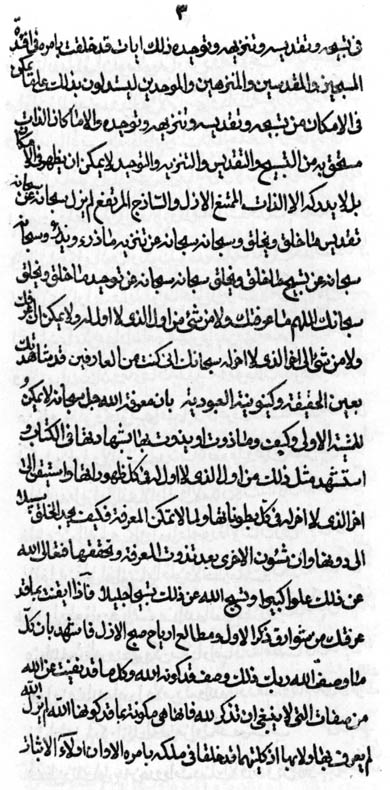 ٣
فى تسبيحه وتقديسه وتنزيهه وتوحيده ذلك ايات قد خلقت بامره فى افئدة
المسبحين والمقدسين والمنزهين والموحدين ليستدلون بذلك على ما يمكن
فى الامكان من تسبيحه وتقديسه وتنزيهه وتوحيده والا ما كان الذات
مستحق به من التسبيح والتقديس والتنزيه والتوحيد لا يمكن ان يظهر فى الامكان
بل لا يدركه الا الذات الممتنع الازل والساذج المرتفع لم يزل سبحانه سبحانه عن
تقديس ما خلق ويخلق وسبحانه سبحانه عن تنزيه ما ذرء ويذرء وسبحانه
سبحانه عن تسبيح ما خلق ويخلق سبحانه سبحانه عن توحيد ما خلق ويخلق
سبحانك اللهم ما عرفتك ولا من شئ من اول الذى لا اول له ولا يمكن ان يعرفك
ولا من شئ الى اخر الذى لا اخر له سبحانك انى كنت من العارفين قد شاهدتك
بعين الحقيقة وكينونية العبودية بان معرفة الله جل سبحانه لا يمكن
للمشية الاولى وكيف وما ذوت او يذوت بها نشهد بما فى الكتاب و
استشهد مثل ذلك من اول الذى لا اول له فى كل ظهوراتها واستقر الى
اخر الذى لا اخر له فى كل بطوناتها ولما لا يمكن المعرفة فكيف يجد الخلق سبيلا
الى دونها وان شئون الاخرى بعد تذوت المعرفة وتحققها فتعالى الله
عن ذلك علوا كبيرا وتسبح الله عن ذلك تسبيحا جليلا فاذا ايقنت بما قد
عرفتك من شوارق ذكر الاول ومطالع ارياح صبح الازل فاشهد بان كل
ما وصف الله ربك ذلك وصف قد كونه الله وكل ما قد نفيت عن الله
من صفات التى لا ينبغى ان تذكر لله فانها هى مكونة بما قد كونها الله الله لم يزل
لم يعرف بها ولا بها اذ كلتيهما قد خلقا فى ملكه بامره الاوان اولاء الاثبات